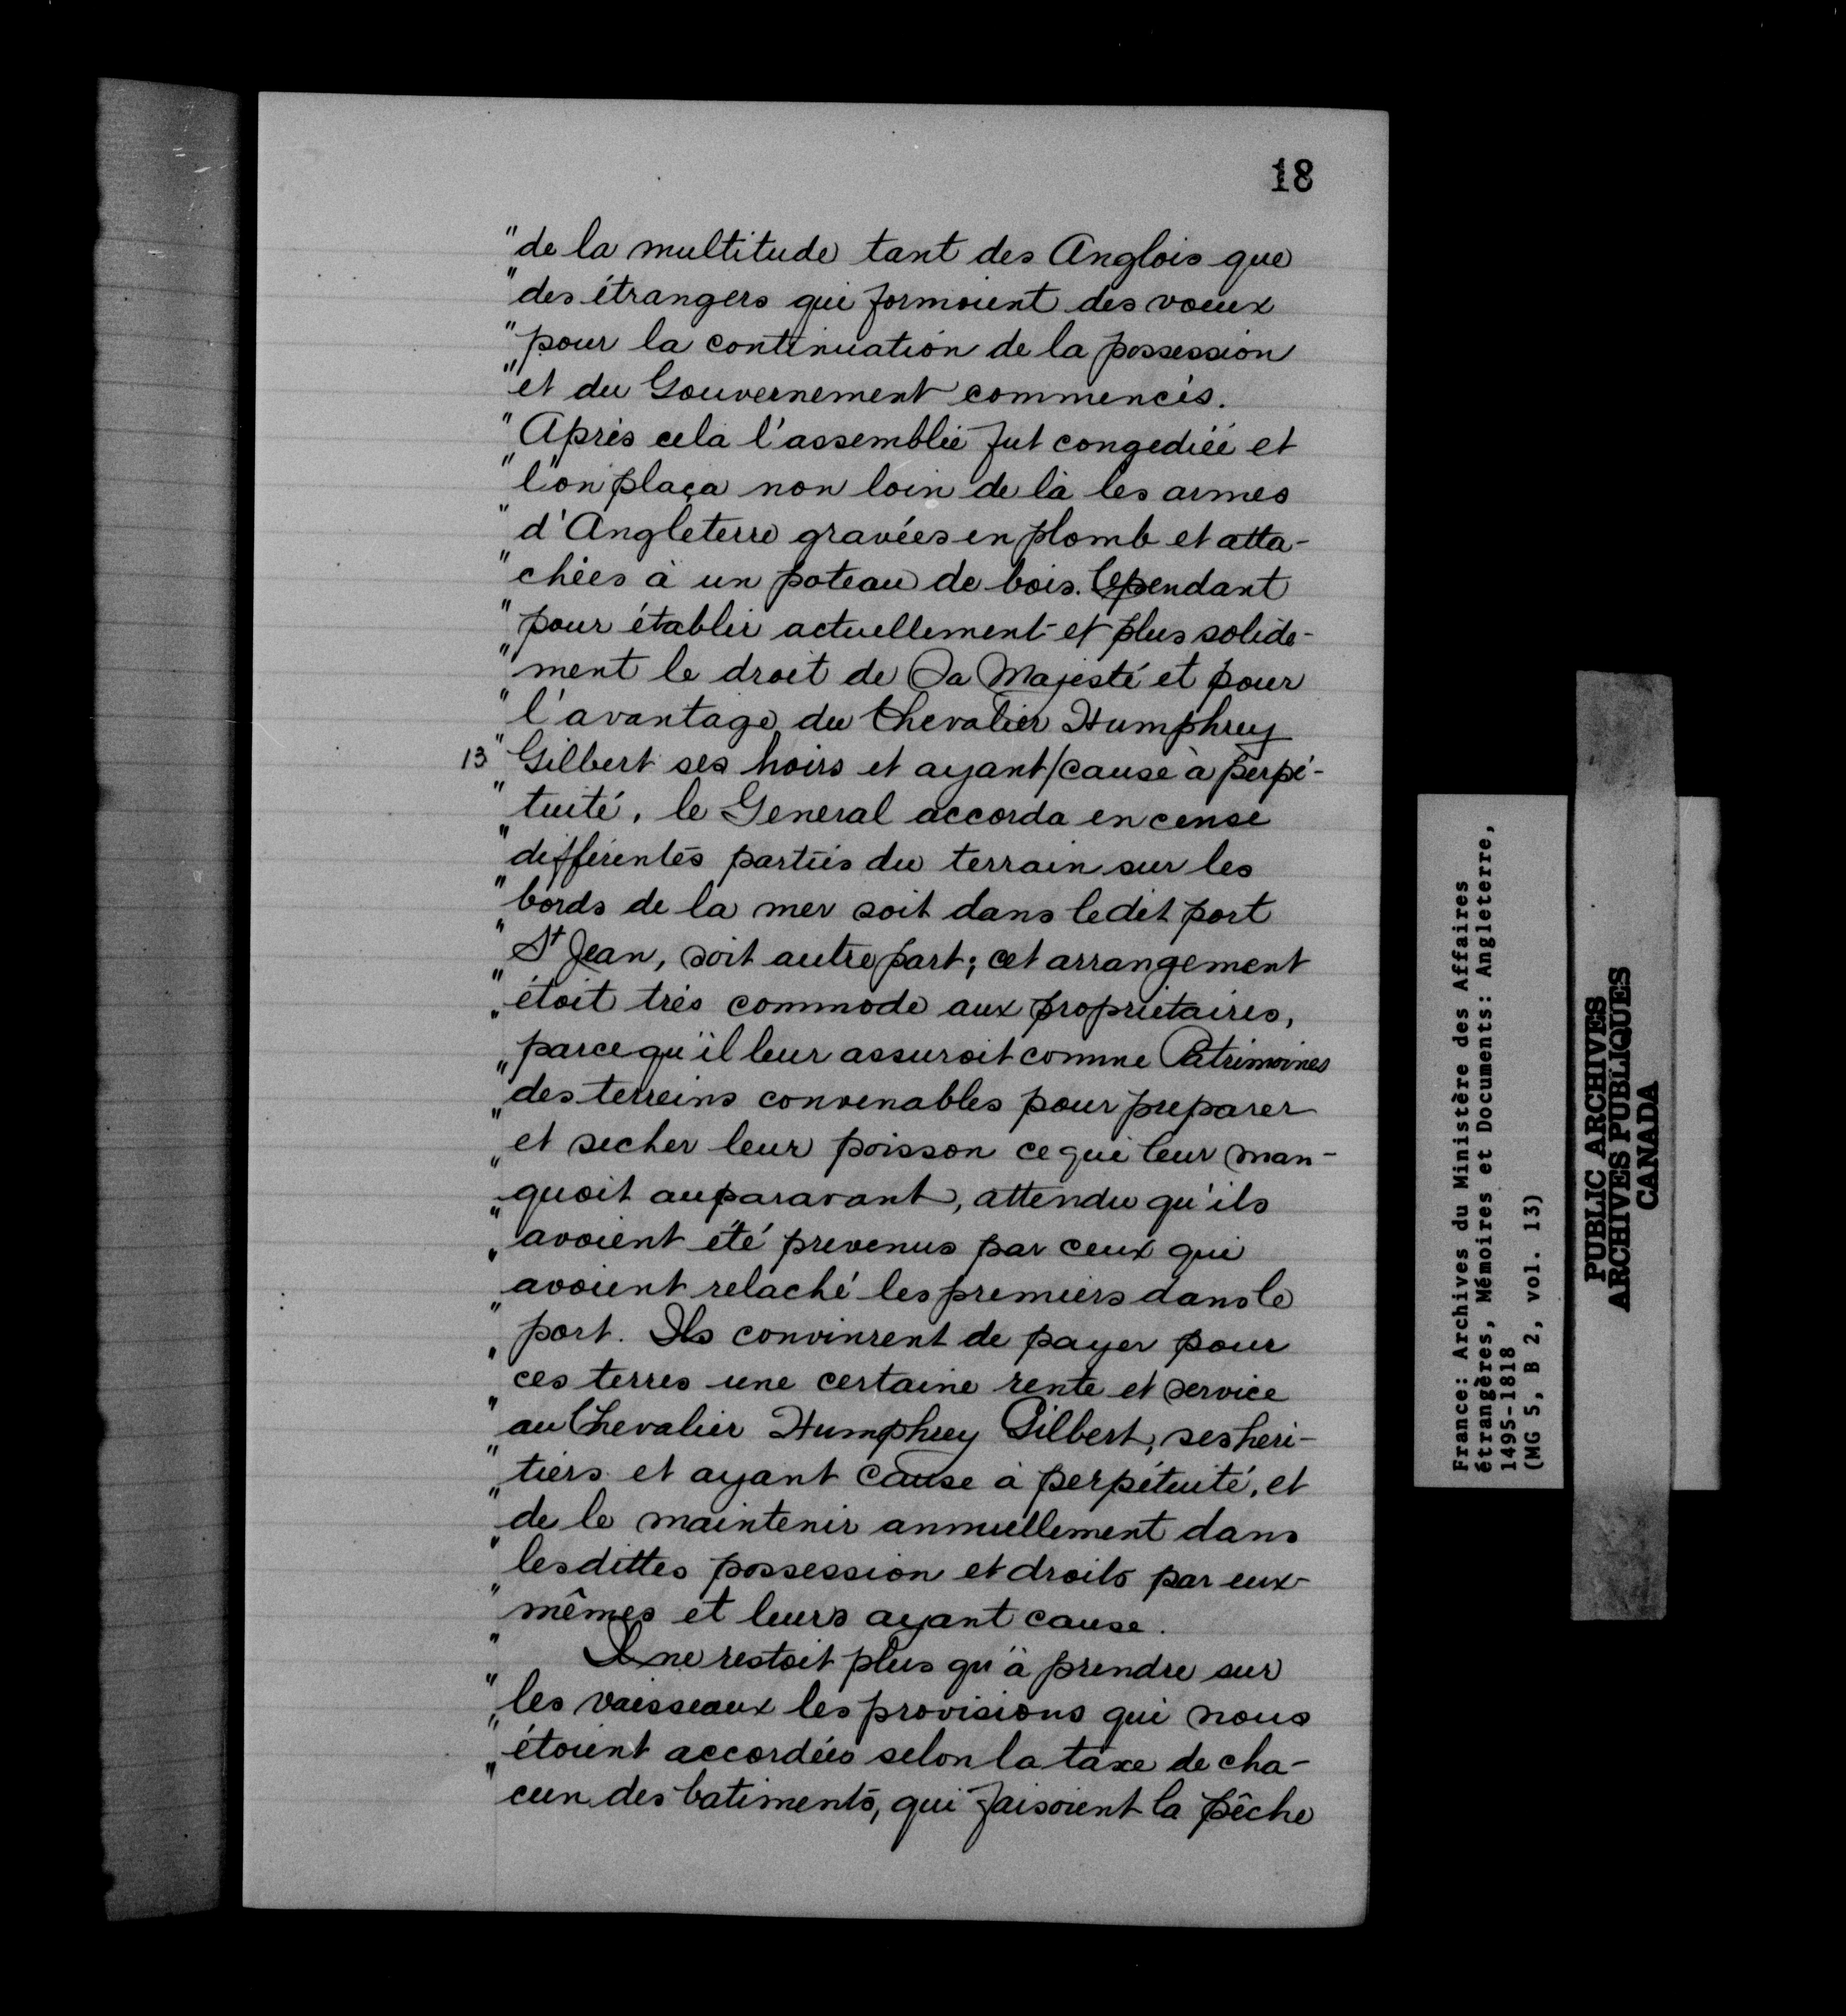 18
"de la multitude tant des Anglois que
"des étrangers qui formoient des voeux
"pour la continuation de la possession
"et du Gouvernement commencés.
"Après cela l'assemblée fut congediée et
"l'on plaça non loin de là les armes
"d'Angleterre gravées en plomb et atta-
"chées à un poteau de bois. Cependant
"pour établir actuellement et plus solide-
"ment le droit de Sa Majesté et pour
"l'avantage du Chevalier Humphrey
13 "Gilbert ses hoirs et ayant/cause à perpé-
"tuité, le General accorda en cense
"différentes parties du terrain sur les
"bords de la mer soit dans ledit port
"St Jean, soit autre part; cet arrangement
"étoit très commode aux propriétaires,
"parcequ'il leur assuroit comme Patrimoines
"des terreins convenables pour preparer
"et secher leur poisson ce qui leur man-
"quoit auparavant, attendu qu'ils
"avoient été prevenus par ceux qui
"avoient relaché les premiers dans le
"port. Ils convinrent de payer pour
"ces terres une certaine rente et service
"au Chevalier Humphrey Gilbert, ses heri-
"tiers et ayant cause à perpétuité, et
"de le maintenir annuellement dans
"lesdittes possession et droits par eux-
"mêmes et leurs ayant cause.
"Il ne restoit plus qu'à prendre sur
"les vaisseaux les provisions qui nous
"étoient accordées selon la taxe de cha-
"cun des batiments, qui faisoient la pêche
France: Archives du Ministère des Affaires
étrangères, Mémoires et Documents: Angleterre,
1495-1818
(MG 5, B 2, vol. 13)
PUBLIC ARCHIVES
ARCHIVES PUBLIQUES
CANADA